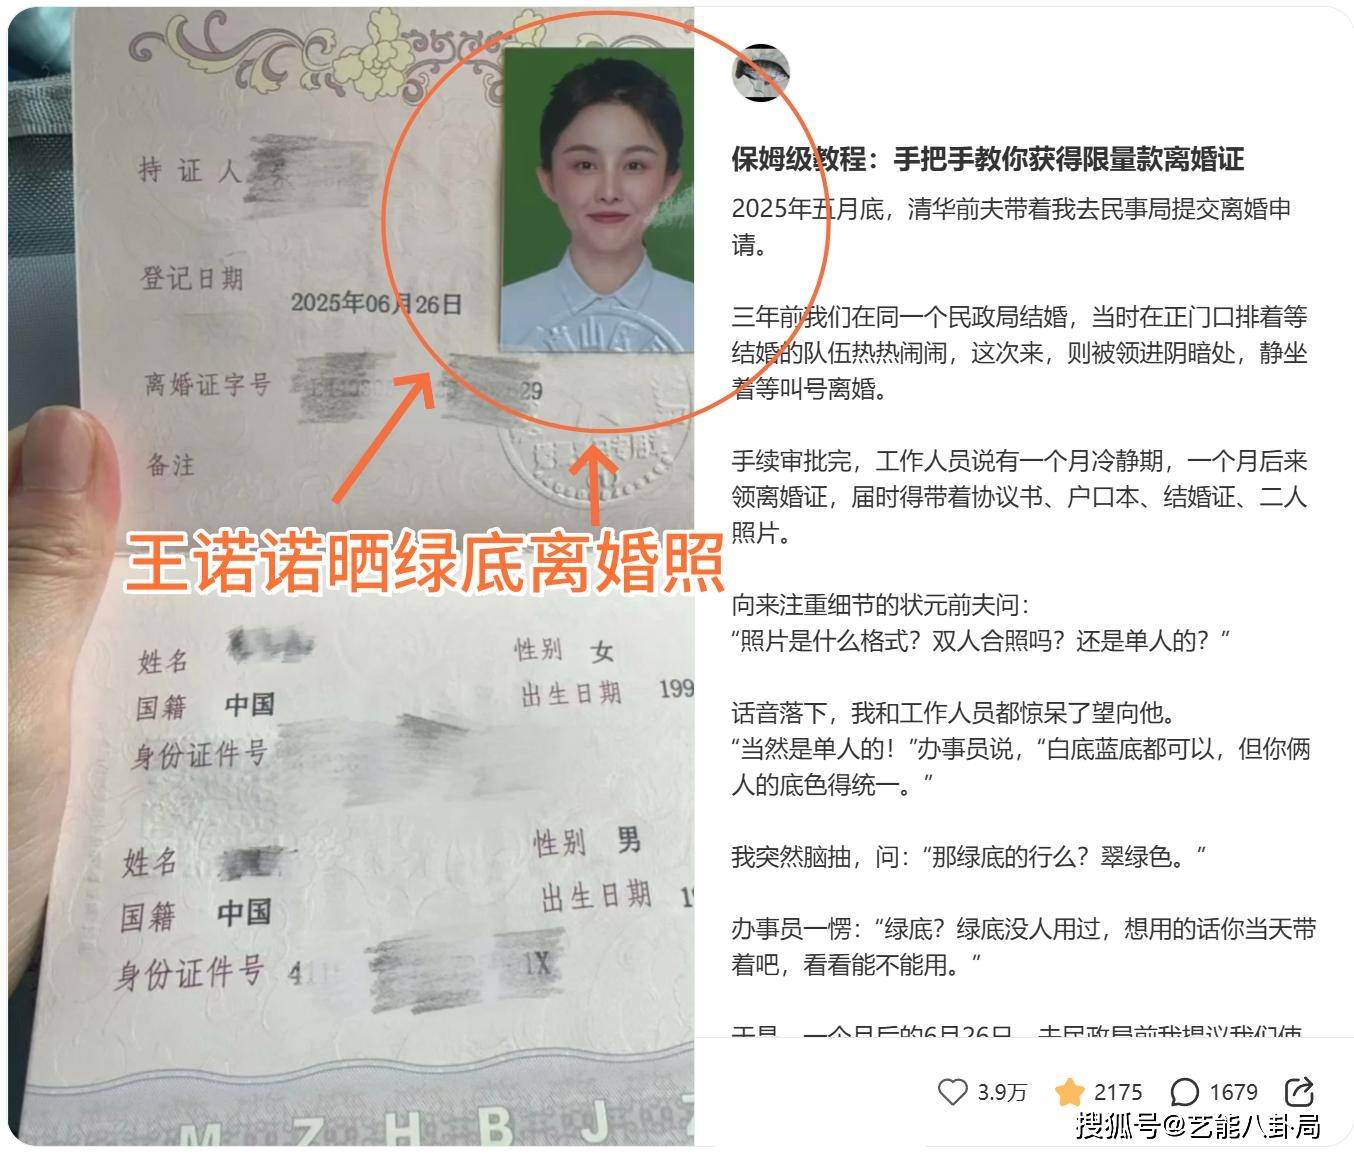 持证人
登记日期
2025年06月26日
离婚证字号
29
备注
王诺诺晒绿底离婚照
姓名
性别 女
国籍 中国
出生日期 199
身份证件号
姓名
性别 男
国籍 中国
出生日期 19
身份证件号 411 1X
M Z H B J Z
保姆级教程：手把手教你获得限量款离婚证
2025年五月底，清华前夫带着我去民事局提交离婚申
请。
三年前我们在同一个民政局结婚，当时在正门口排着等
结婚的队伍热热闹闹，这次来，则被领进阴暗处，静坐
着等叫号离婚。
手续审批完，工作人员说有一个月冷静期，一个月后来
领离婚证，届时得带着协议书、户口本、结婚证、二人
照片。
向来注重细节的状元前夫问：
“照片是什么格式？双人合照吗？还是单人的？”
话音落下，我和工作人员都惊呆了望向他。
“当然是单人的！”办事员说，“白底蓝底都可以，但你俩
人的底色得统一。”
我突然脑抽，问：“那绿底的行么？翠绿色。”
办事员一愣：“绿底？绿底没人用过，想用的话你当天带
着吧，看看能不能用。”
于是，一个月后的6月26日，去民政局前我提议我们使
3.9万 2175 1679
搜狐号@艺能八卦局